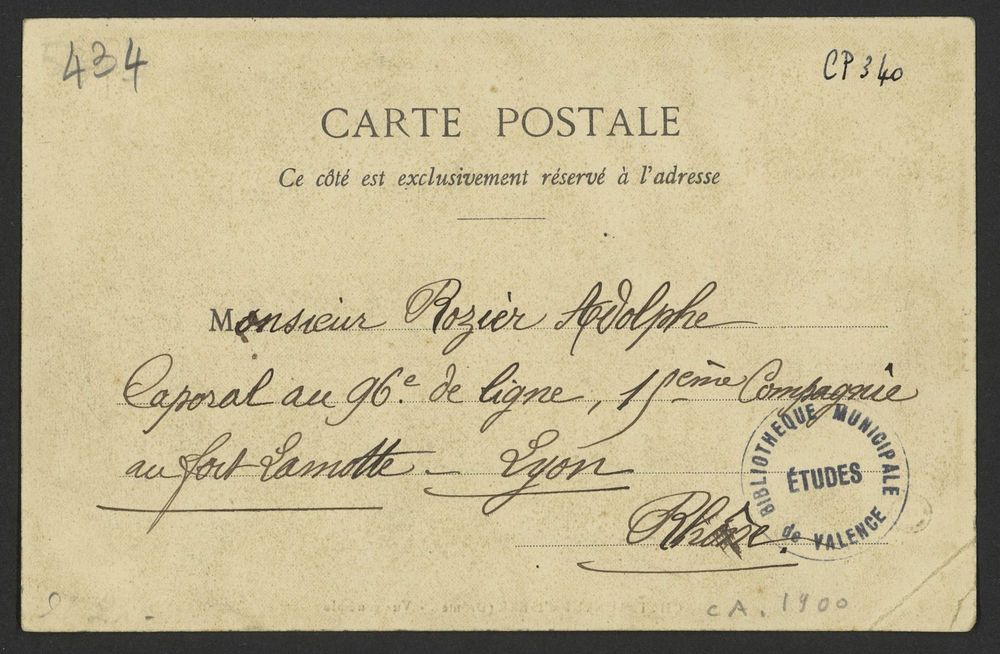 434
CP 340
CARTE POSTALE
Ce côté est exclusivement réservé à l'adresse
Monsieur Rozier Adolphe
Caporal au 96.e de ligne, 15eme Compagnie
au fort Lamotte - Lyon
Rhône.
BIBLIOTHEQUE MUNICIPALE
ÉTUDES
de VALENCE
CA. 1900